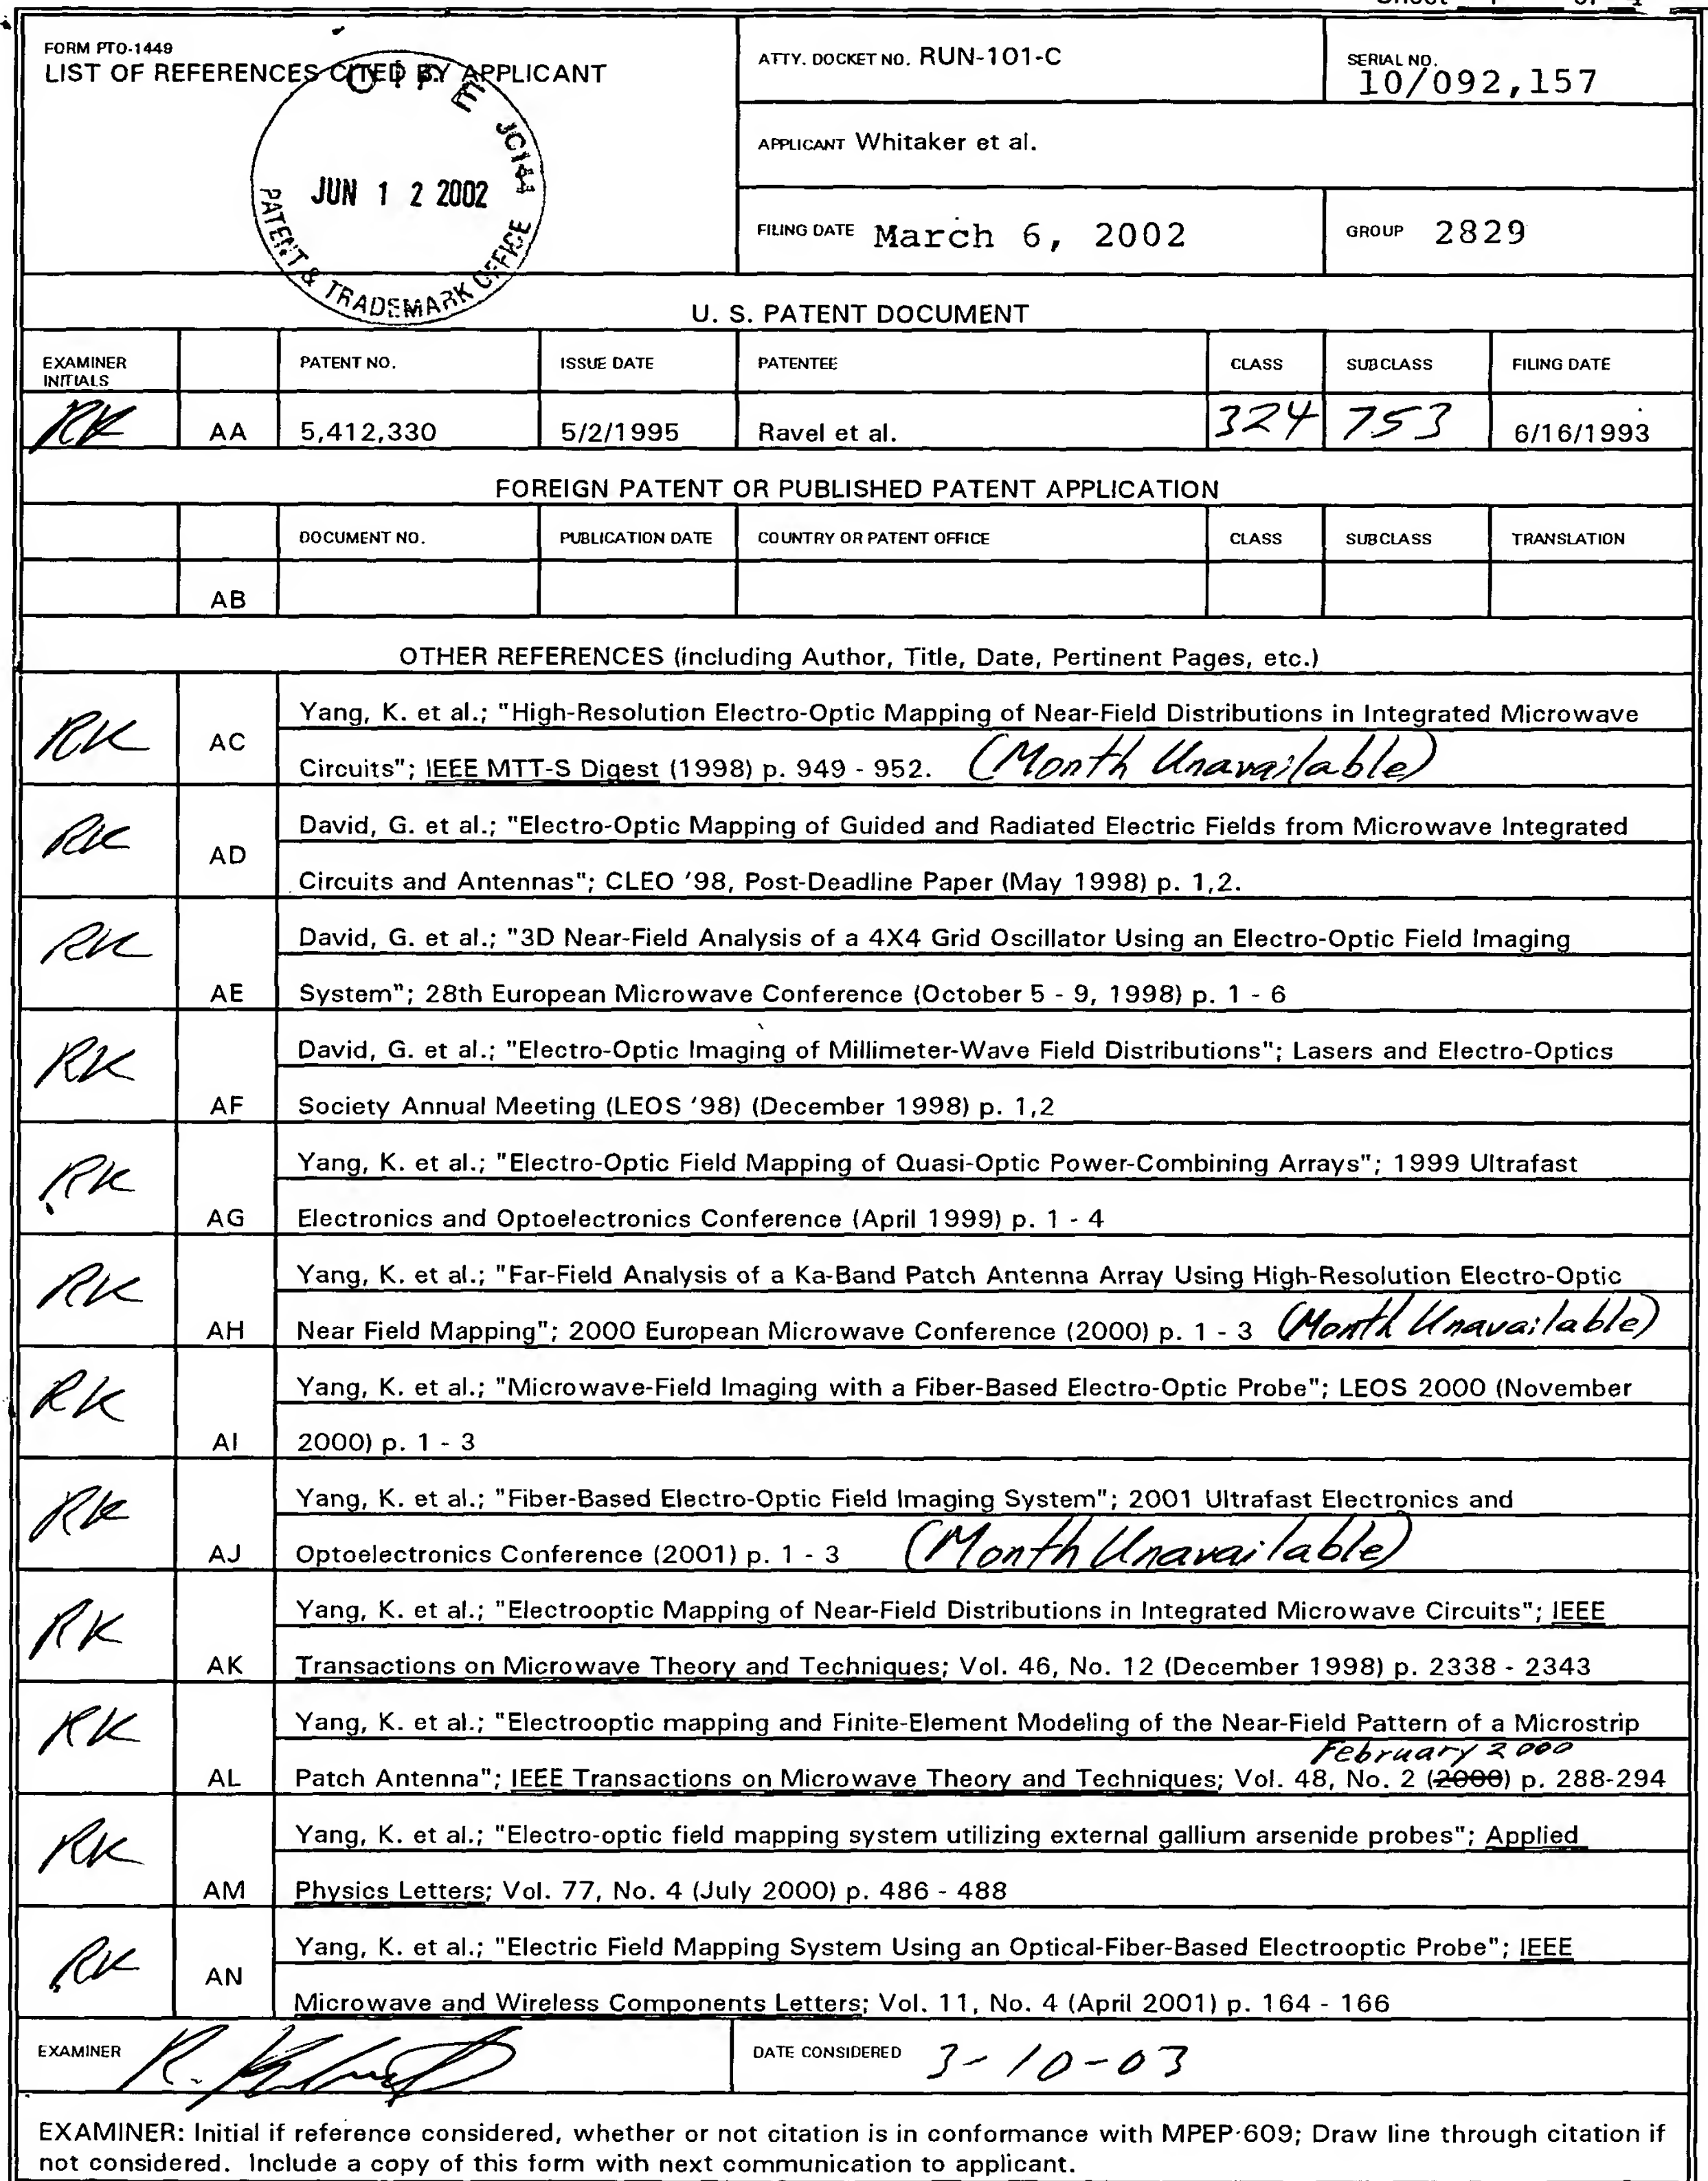 FORM PTO-1449
LIST OF REFERENCES CITED BY APPLICANT
O I P E JC144
JUN 1 2 2002
PATENT & TRADEMARK OFFICE
ATTY. DOCKET NO. RUN-101-C
SERIAL NO.
10/092,157
APPLICANT Whitaker et al.
FILING DATE March 6, 2002
GROUP 2829
U. S. PATENT DOCUMENT
EXAMINER INITIALS PATENT NO. ISSUE DATE PATENTEE CLASS SUBCLASS FILING DATE
RK AA 5,412,330 5/2/1995 Ravel et al. 324 753 6/16/1993
FOREIGN PATENT OR PUBLISHED PATENT APPLICATION
DOCUMENT NO. PUBLICATION DATE COUNTRY OR PATENT OFFICE CLASS SUBCLASS TRANSLATION
AB
OTHER REFERENCES (including Author, Title, Date, Pertinent Pages, etc.)
RK AC Yang, K. et al.; "High-Resolution Electro-Optic Mapping of Near-Field Distributions in Integrated Microwave
Circuits"; IEEE MTT-S Digest (1998) p. 949 - 952. (Month Unavailable)
RK AD David, G. et al.; "Electro-Optic Mapping of Guided and Radiated Electric Fields from Microwave Integrated
Circuits and Antennas"; CLEO '98, Post-Deadline Paper (May 1998) p. 1,2.
RK AE David, G. et al.; "3D Near-Field Analysis of a 4X4 Grid Oscillator Using an Electro-Optic Field Imaging
System"; 28th European Microwave Conference (October 5 - 9, 1998) p. 1 - 6
RK AF David, G. et al.; "Electro-Optic Imaging of Millimeter-Wave Field Distributions"; Lasers and Electro-Optics
Society Annual Meeting (LEOS '98) (December 1998) p. 1,2
RK AG Yang, K. et al.; "Electro-Optic Field Mapping of Quasi-Optic Power-Combining Arrays"; 1999 Ultrafast
Electronics and Optoelectronics Conference (April 1999) p. 1 - 4
RK AH Yang, K. et al.; "Far-Field Analysis of a Ka-Band Patch Antenna Array Using High-Resolution Electro-Optic
Near Field Mapping"; 2000 European Microwave Conference (2000) p. 1 - 3 (Month Unavailable)
RK AI Yang, K. et al.; "Microwave-Field Imaging with a Fiber-Based Electro-Optic Probe"; LEOS 2000 (November
2000) p. 1 - 3
RK AJ Yang, K. et al.; "Fiber-Based Electro-Optic Field Imaging System"; 2001 Ultrafast Electronics and
Optoelectronics Conference (2001) p. 1 - 3 (Month Unavailable)
RK AK Yang, K. et al.; "Electrooptic Mapping of Near-Field Distributions in Integrated Microwave Circuits"; IEEE
Transactions on Microwave Theory and Techniques; Vol. 46, No. 12 (December 1998) p. 2338 - 2343
RK AL Yang, K. et al.; "Electrooptic mapping and Finite-Element Modeling of the Near-Field Pattern of a Microstrip
February 2000
Patch Antenna"; IEEE Transactions on Microwave Theory and Techniques; Vol. 48, No. 2 (2000) p. 288-294
RK AM Yang, K. et al.; "Electro-optic field mapping system utilizing external gallium arsenide probes"; Applied
Physics Letters; Vol. 77, No. 4 (July 2000) p. 486 - 488
RK AN Yang, K. et al.; "Electric Field Mapping System Using an Optical-Fiber-Based Electrooptic Probe"; IEEE
Microwave and Wireless Components Letters; Vol. 11, No. 4 (April 2001) p. 164 - 166
EXAMINER R.
DATE CONSIDERED 3-10-03
EXAMINER: Initial if reference considered, whether or not citation is in conformance with MPEP 609; Draw line through citation if
not considered. Include a copy of this form with next communication to applicant.